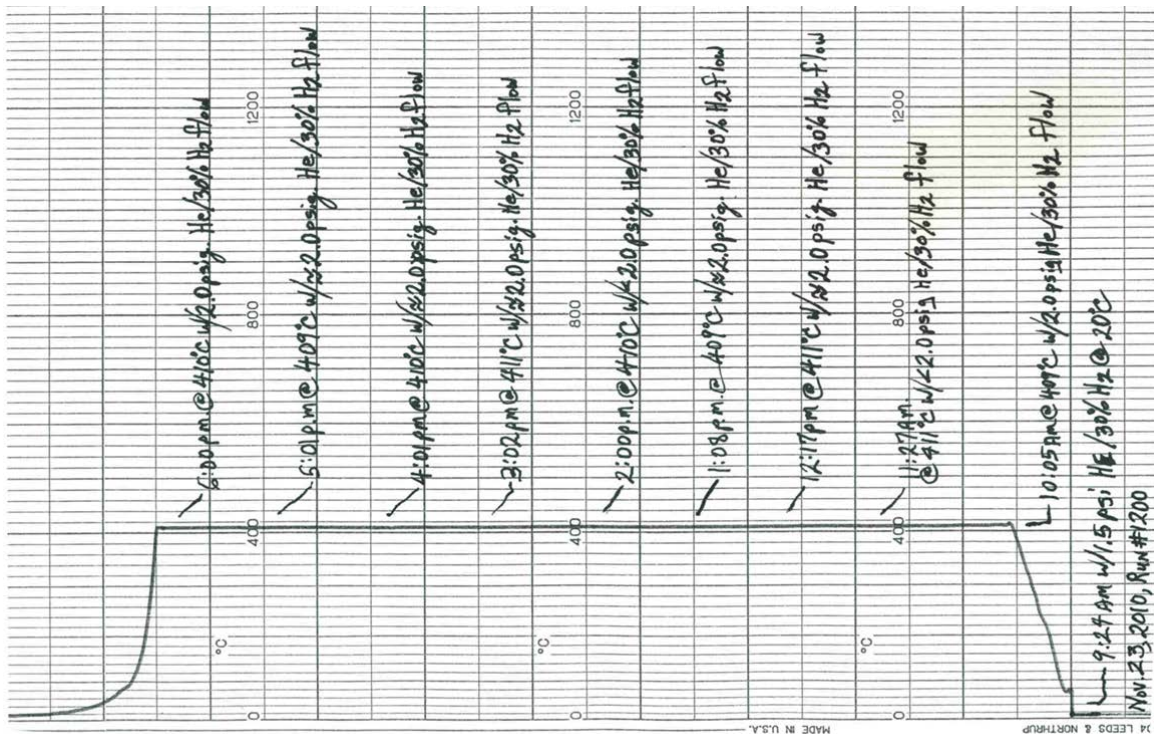 6:00pm@410°C w/2.0psig. He/30% H2 flow
5:01p.m@409°C w/≈2.0psig. He/30% H2 flow
4:01pm@410°C w/≈2.0psig. He/30% H2 flow
3:02pm@411°C w/≈2.0psig. He/30% H2 flow
2:00p.m.@410°C w/<2.0psig. He/30% H2 flow
1:08p.m.@409°C w/≈2.0psig. He/30% H2 flow
12:17pm@411°C w/≈2.0psig. He/30% H2 flow
11:27Am.
@411°C w/<2.0psig He/30% H2 flow
10:05Am@409°C w/2.0psig He/30% H2 flow
9:24 AM w/1.5 psi HE/30% H2@20°C
Nov.23,2010, Run#1200
1200
1200
1200
800
800
800
400
400
400
°C
°C
°C
0
0
0
MADE IN U.S.A.
04 LEEDS & NORTHRUP